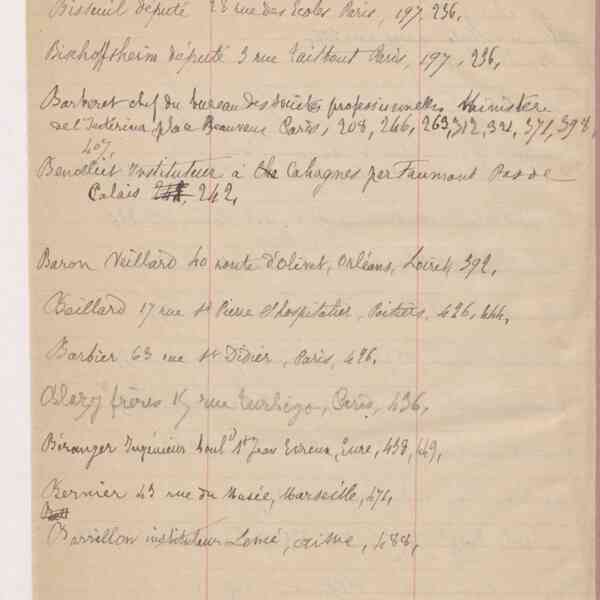 Bisseuil député 28 rue des Ecoles Paris, 197, 236,
Bischoffsheim député 3 rue Taitbout Paris, 197, 236,
Barberet chef du bureau des sociétés professionnelles Ministère
de l'Intérieur, place Beauveau Paris, 208, 246, 263, 312, 321, 371, 398,
407,
Instituteur à Cahagnes par Faumont Pas de
Calais 242,
Baron Veillard 40 route d'Olivet, Orléans, Loiret 392,
17 rue St Pierre l'hospitalier, Poitiers, 426, 444,
Barbier 63 rue St Didier, Paris, 426,
frères 15 rue Turbigo, Paris, 436,
Béranger Ingénieur boul'd St Jean Evreux, Eure, 438, 449,
Bernier 43 rue du Musée, Marseille, 471,
Barrillon instituteur Lemé, Aisne, 488,